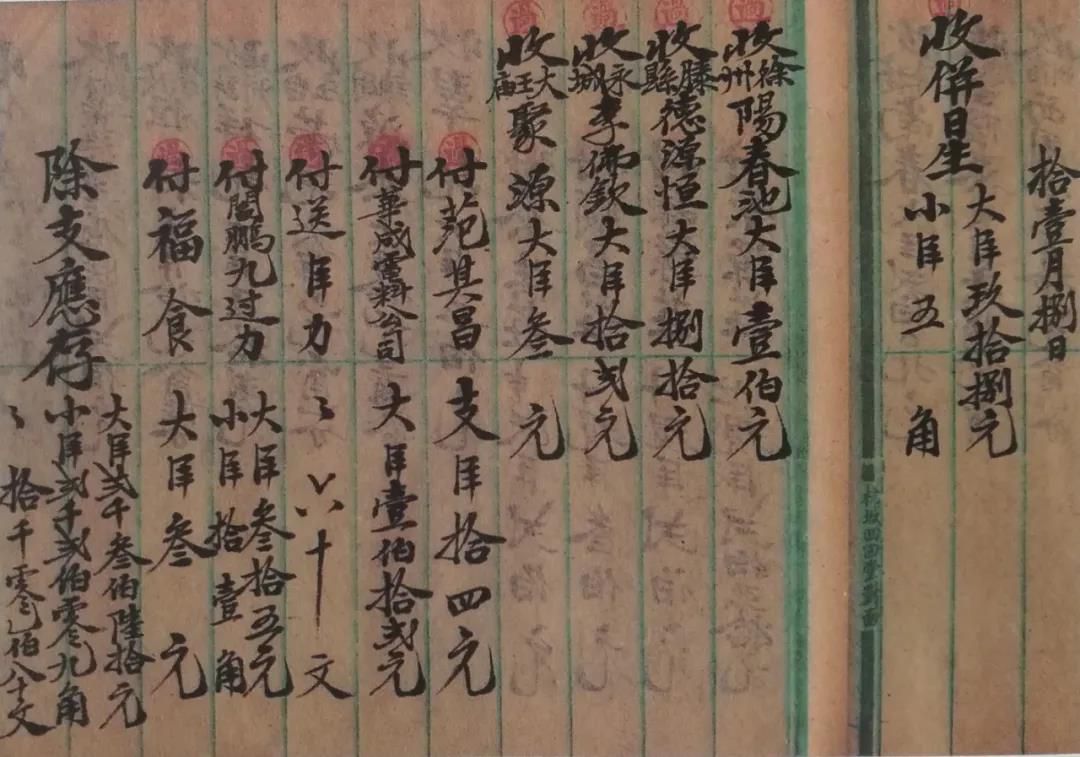 拾壹月捌日
收併日生
大洋玖拾捌元
小洋五角
收徐州陽春池大洋壹伯元
收滕縣德源恒大洋捌拾元
收永城李佛欽大洋拾弍元
收大王庙聚源大洋叁元
付范其昌支洋拾四元
付華成電料公司大洋壹伯拾弍元
付送洋力
文
付閻鵬九过力
大洋叁拾五元
小洋拾壹角
付福食大洋叁元
除支應存
大洋弍千叁伯陸拾元
小洋弍千弍伯零九角